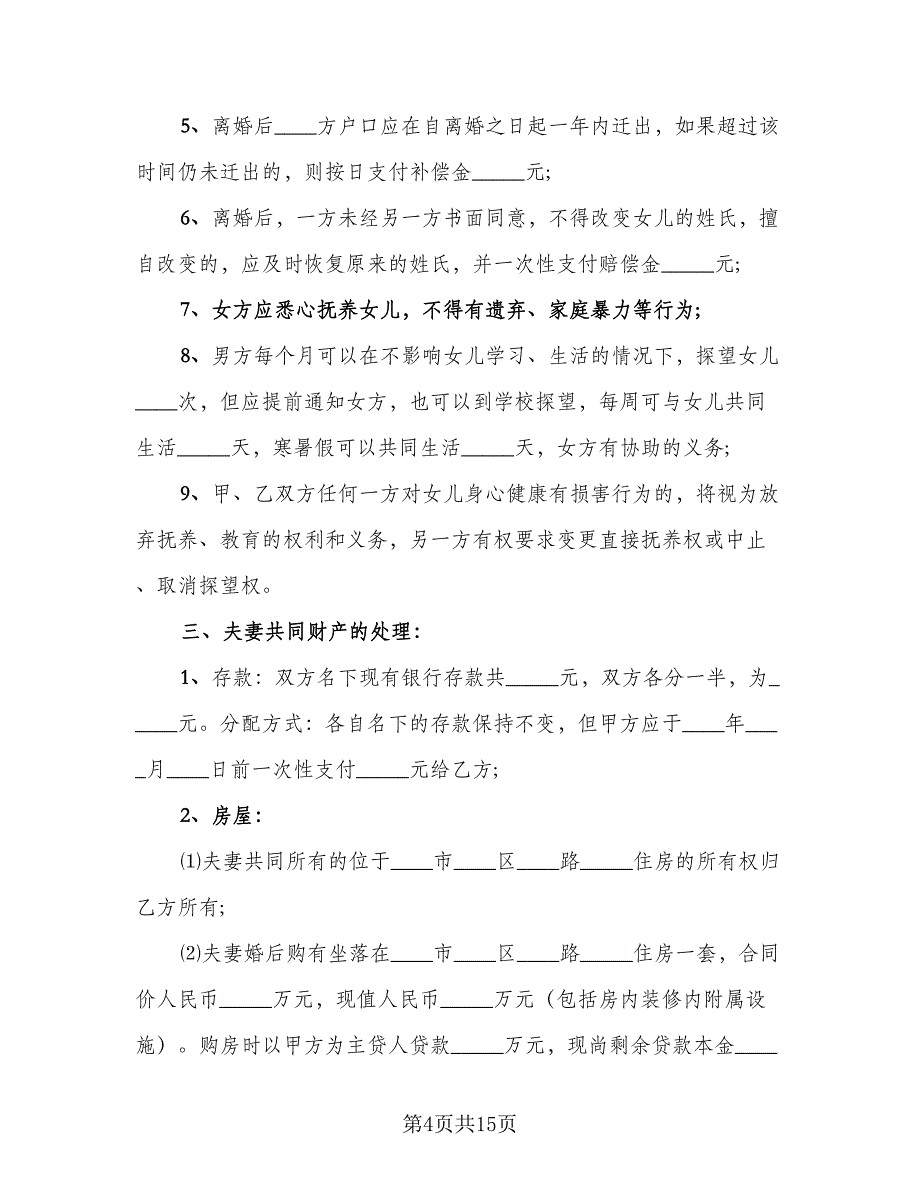 5、离婚后____方户口应在自离婚之日起一年内迁出，如果超过该
时间仍未迁出的，则按日支付补偿金_____元;
6、离婚后，一方未经另一方书面同意，不得改变女儿的姓氏，擅
自改变的，应及时恢复原来的姓氏，并一次性支付赔偿金_____元;
7、女方应悉心抚养女儿，不得有遗弃、家庭暴力等行为;
8、男方每个月可以在不影响女儿学习、生活的情况下，探望女儿
____次，但应提前通知女方，也可以到学校探望，每周可与女儿共同
生活_____天，寒暑假可以共同生活_____天，女方有协助的义务;
9、甲、乙双方任何一方对女儿身心健康有损害行为的，将视为放
弃抚养、教育的权利和义务，另一方有权要求变更直接抚养权或中止
、取消探望权。
三、夫妻共同财产的处理：
1、存款：双方名下现有银行存款共_____元，双方各分一半，为_
____元。分配方式：各自名下的存款保持不变，但甲方应于____年___
_月____日前一次性支付_____元给乙方;
2、房屋：
⑴夫妻共同所有的位于____市____区____路_____住房的所有权归
乙方所有;
⑵夫妻婚后购有坐落在____市____区____路_____住房一套，合同
价人民币_____万元，现值人民币_____万元（包括房内装修内附属设
施）。购房时以甲方为主贷人贷款_____万元，现尚剩余贷款本金____
第4页共15页